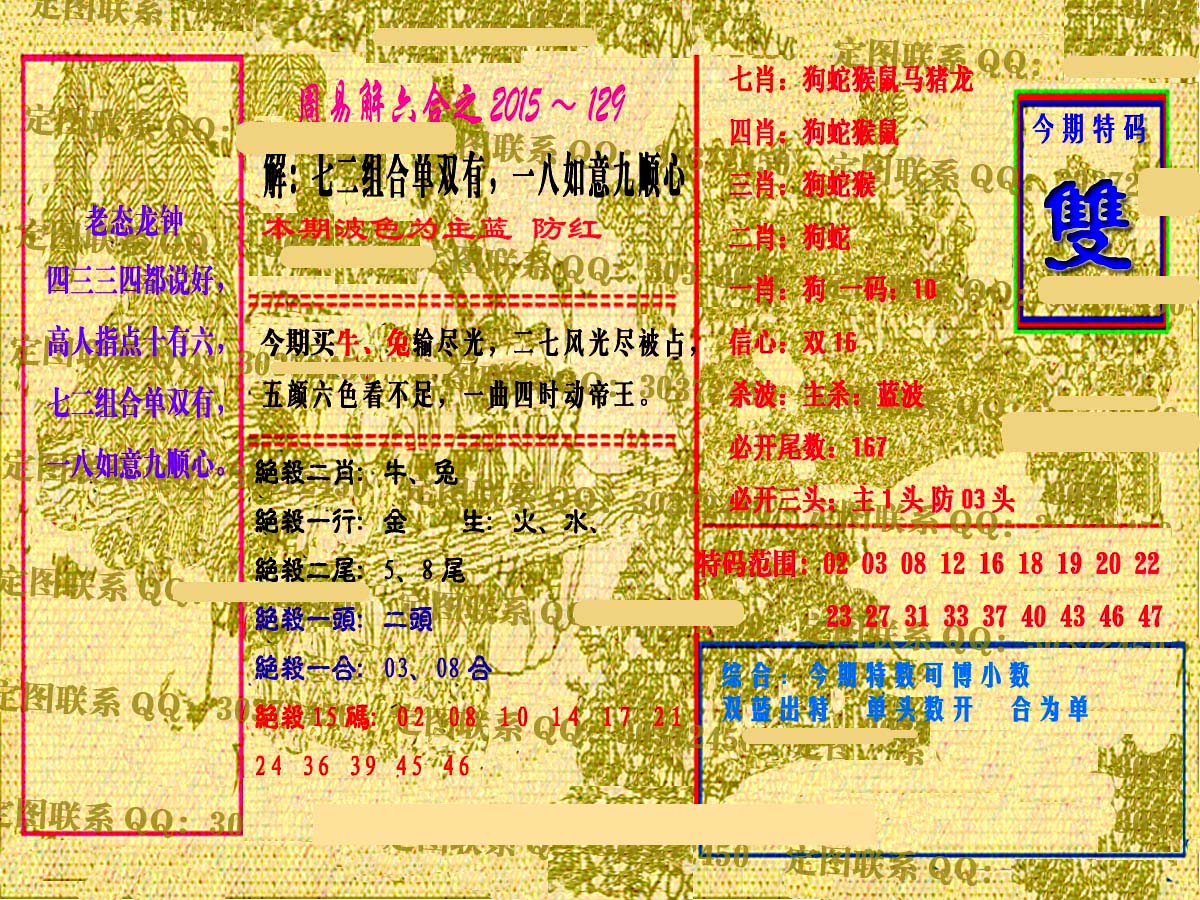 老态龙钟
四三三四都说好，
高人指点十有六，
七二组合单双有，
一八如意九顺心。
周易解六合之 2015～129
解：七二组合单双有，一八如意九顺心
本期波色为主蓝 防红
今期买牛、兔输尽光，二七风光尽被占，
五颜六色看不足，一曲四时动帝王。
絕殺二肖：牛、兔
絕殺一行：金 生：火、水、
絕殺二尾：5、8 尾
絕殺一頭：二頭
絕殺一合：03、08 合
絕殺 15 碼：02 08 10 14 17 21
24 36 39 45 46
七肖：狗蛇猴鼠马猪龙
四肖：狗蛇猴鼠
三肖：狗蛇猴
二肖：狗蛇
一肖：狗 一码：10
信心：双 16
杀波：主杀：蓝波
必开尾数：167
必开三头：主 1 头 防 03 头
今期特码
雙
特码范围：02 03 08 12 16 18 19 20 22
23 27 31 33 37 40 43 46 47
综合：今期特数可博小数
双蓝出特 单头数开 合为单
定图联系 QQ：